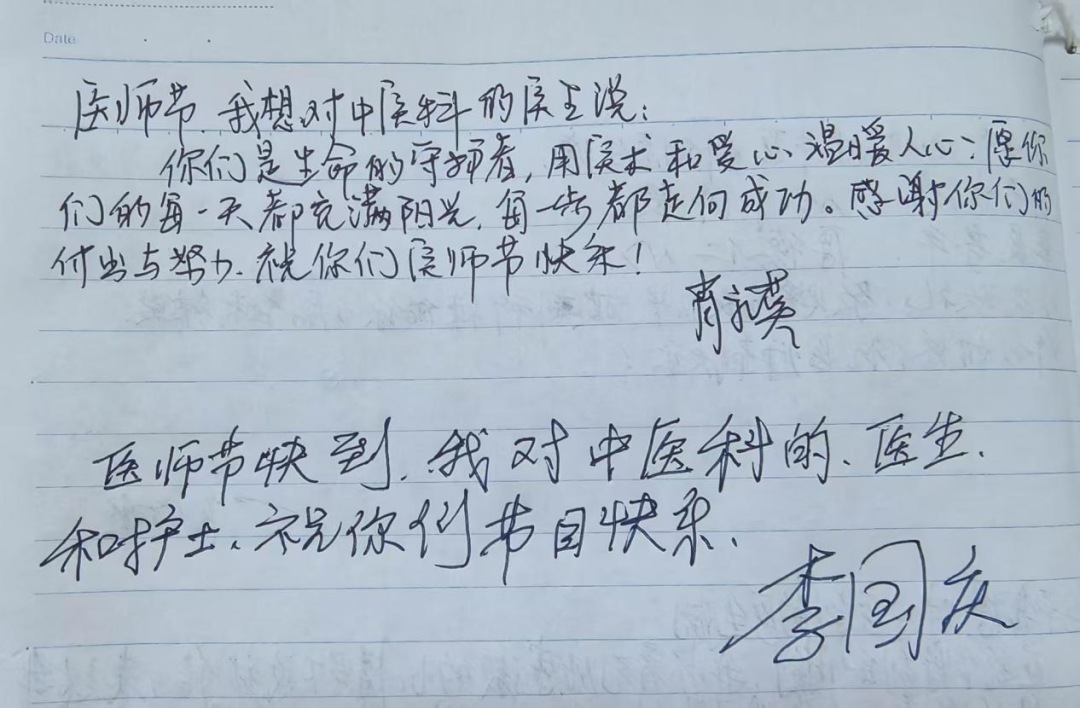 Date
医师节,我想对中医科的医生说:
你们是生命的守护者,用医术和爱心温暖人心;愿你
们的每一天都充满阳光,每一步都走向成功。感谢你们的
付出与努力,祝你们医师节快乐!
肖
医师节快到,我对中医科的、医生、
和护士、祝你们节目快乐、
李国庆